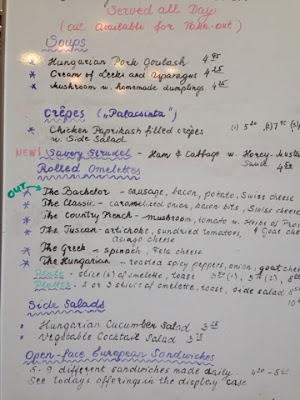 Served all Day
(all available for Take-out)
Soups
* Hungarian Pork Goulash 4 95
* Cream of Leeks and Asparagus 4 25
* Mushroom w. homemade dumplings 4 25
Crêpes („Palacsinta")
* Chicken Paprikash filled crêpes (1) 5 (2) 7
w. side Salad
NEW! Savory Strudel - Ham & Cabbage w. Honey-
Sauce 4
Rolled Omelettes
OUT The Bachelor - sausage, bacon, potato, Swiss cheese
* The Classic - caramelized onion, bacon bits, Swiss cheese
* The Country French - mushroom, tomato w. Herbs of
* The Tuscan - artichoke, sundried tomatoes, & Goat
Asiago cheese
* The Greek - spinach, Feta cheese
* The Hungarian - roasted spicy peppers, onion, goat
slice(s) of omelette, toast
2 or 3 slices of omelette, toast, side salad
10
Side Salads
* Hungarian Cucumber Salad 3 25
* Vegetable Cocktail Salad 3 25
Open-face European Sandwiches
5-9 different sandwiches made daily. 4 50
See todays offerings in the display case